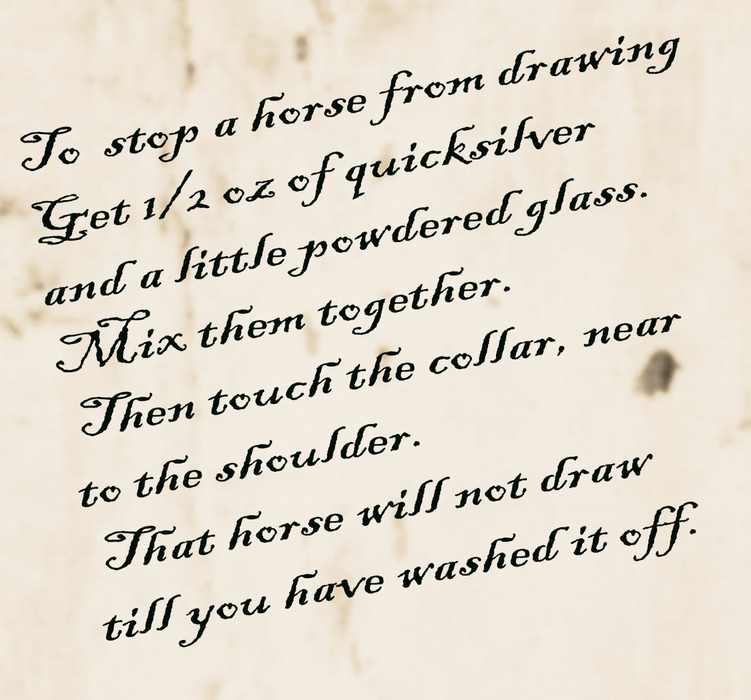 To stop a horse from drawing
Get 1/2 oz of quicksilver
and a little powdered glass.
Mix them together.
Then touch the collar, near
to the shoulder.
That horse will not draw
till you have washed it off.